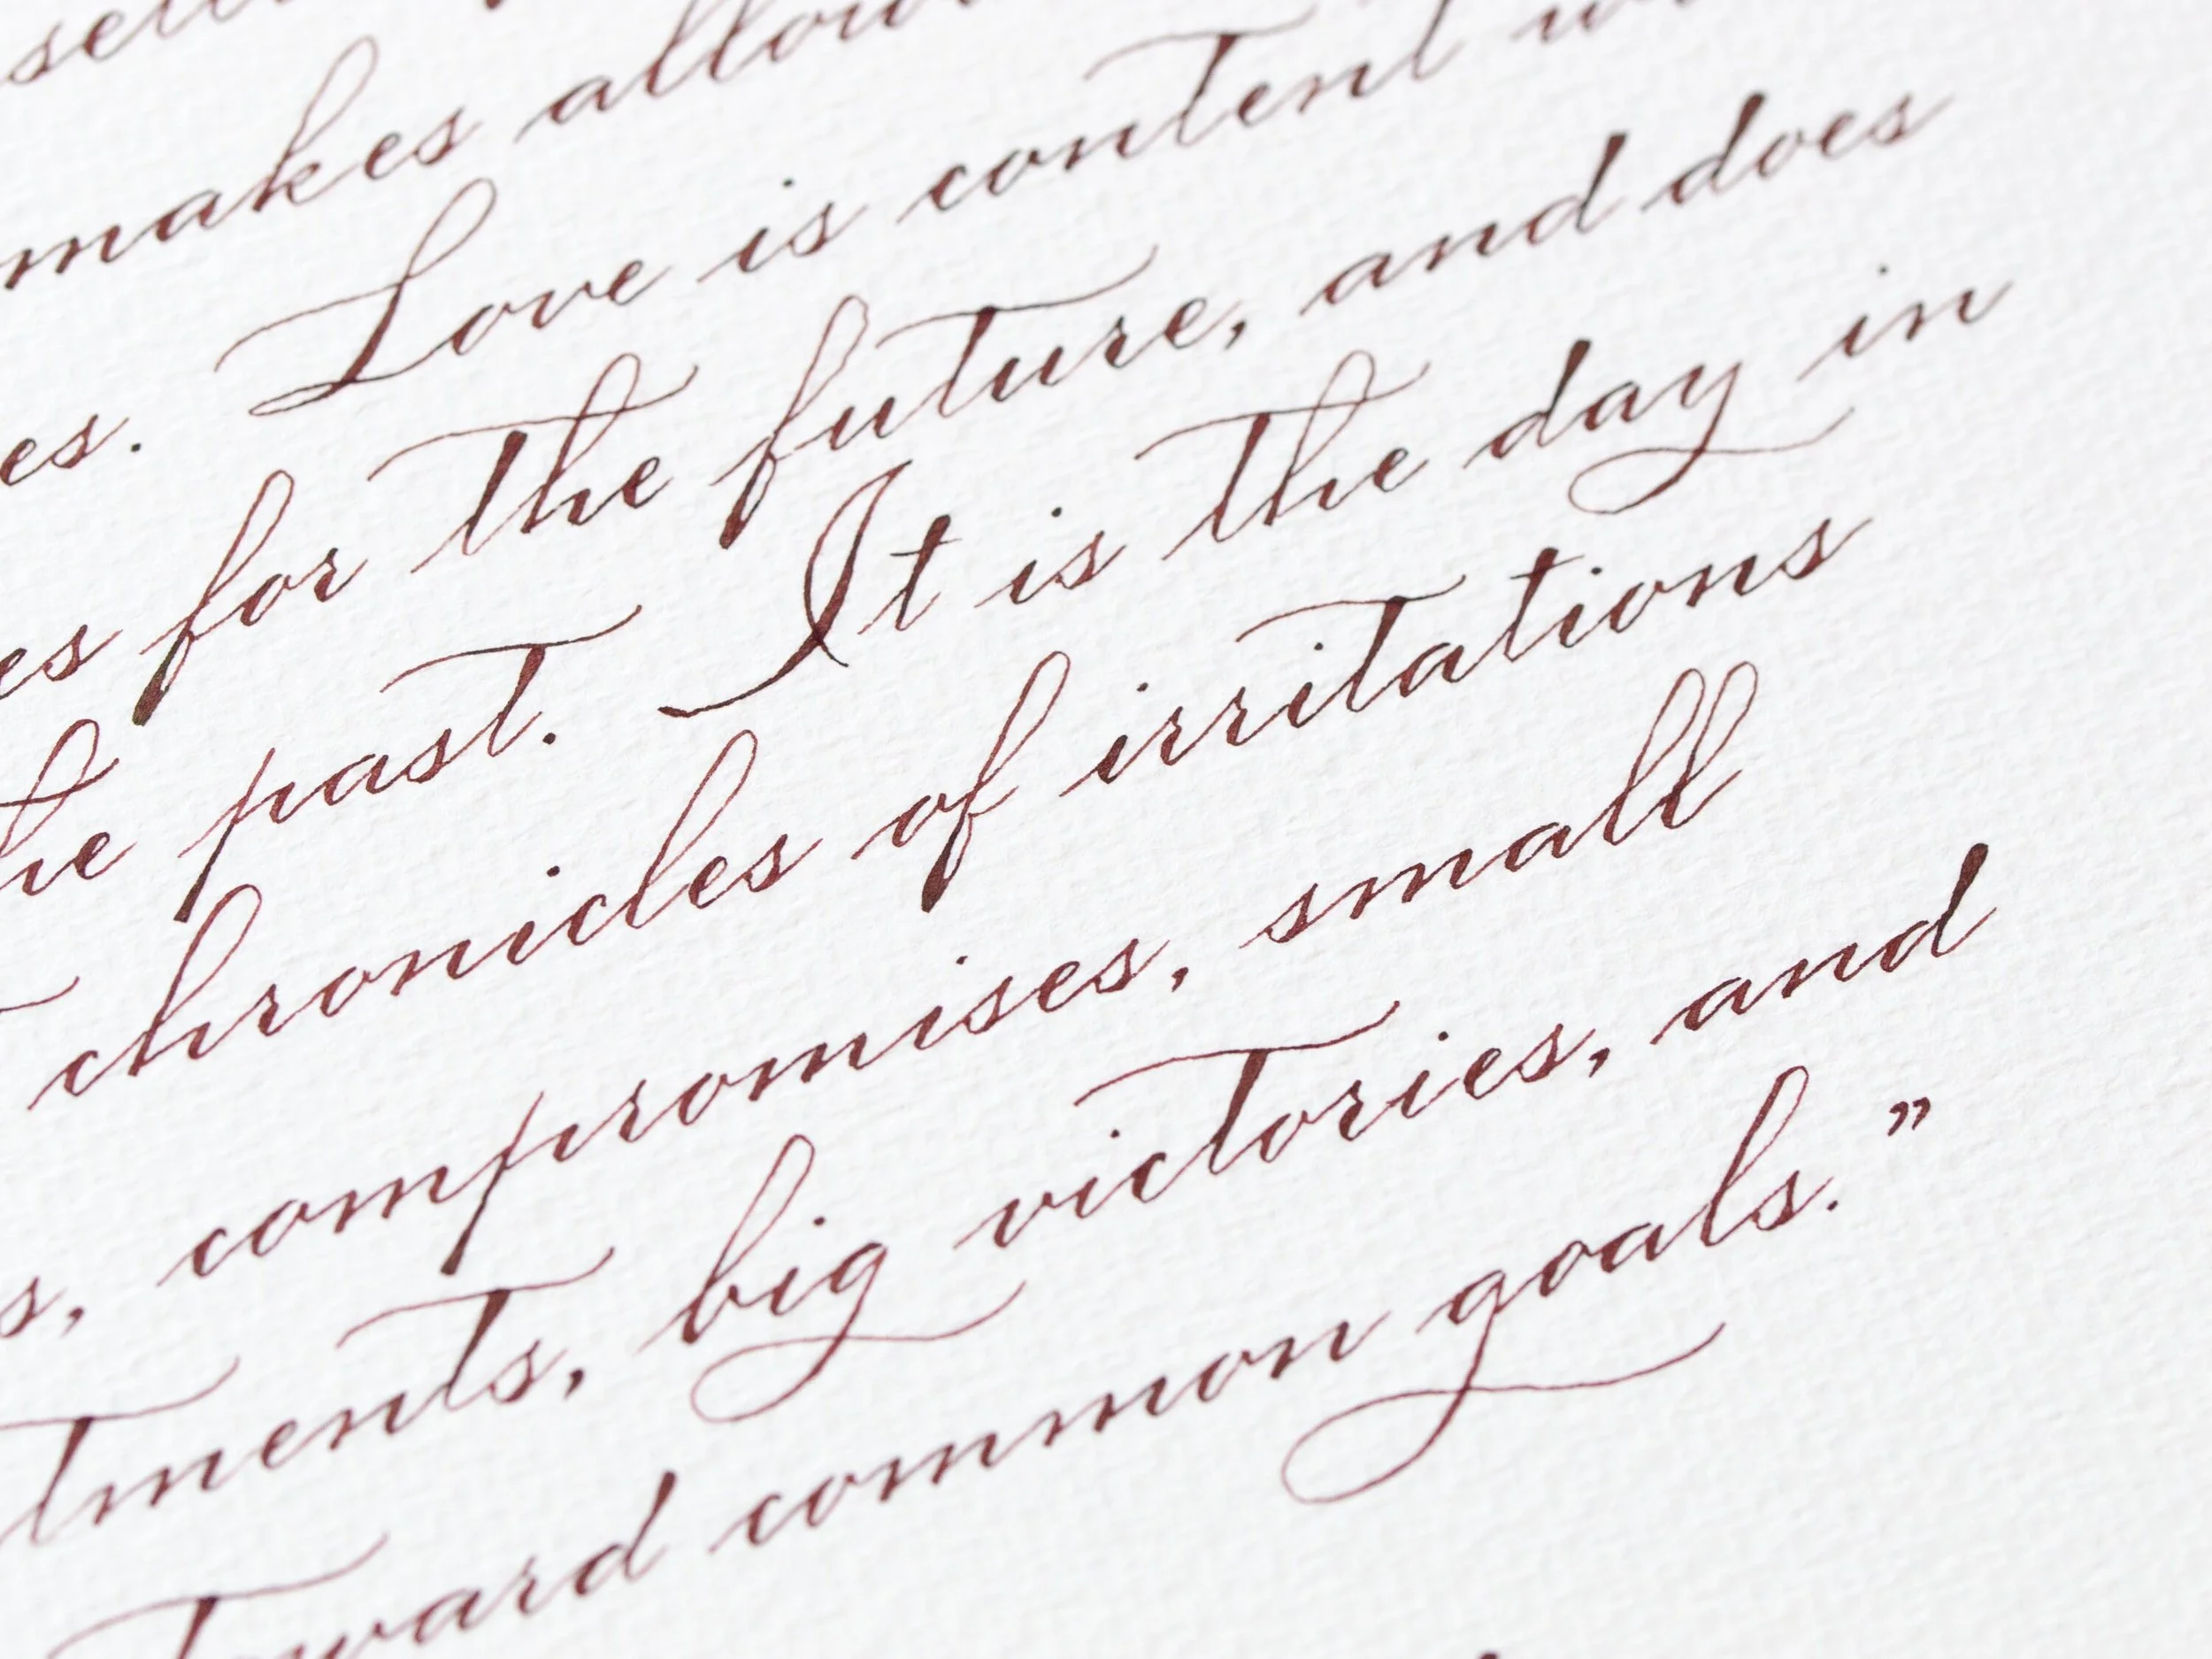 makes
es. Love is content
es for the future, and does
he past. It is the day in
chronicles of irritations
s, compromises, small
tments, big victories, and
toward common goals.”